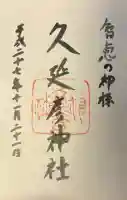 智恵の神様
久延彦神社
平成二十七年十一月二十一日